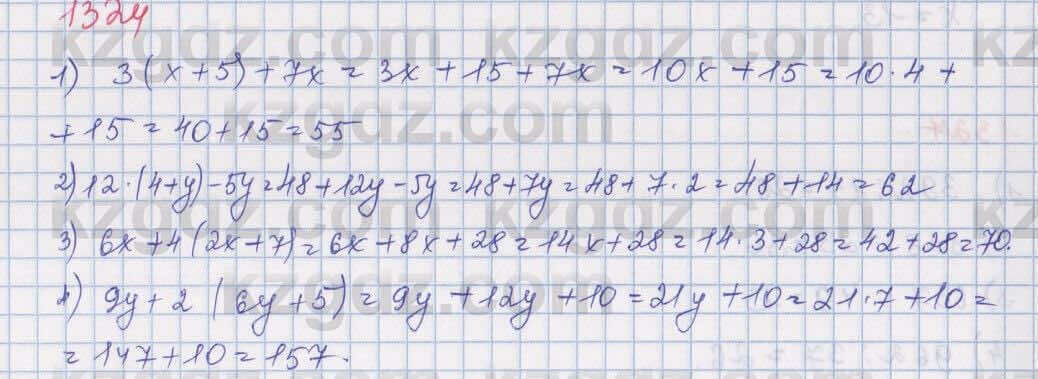 1324
1) 3(x+5)+7x=3x+15+7x=10x+15=10·4+
+15=40+15=55
2) 12·(4+y)-5y=48+12y-5y=48+7y=48+7·2=48+14=62
3) 6x+4(2x+7)=6x+8x+28=14x+28=14·3+28=42+28=70.
4) 9y+2(6y+5)=9y+12y+10=21y+10=21·7+10=
=147+10=157.
kzgdz.com